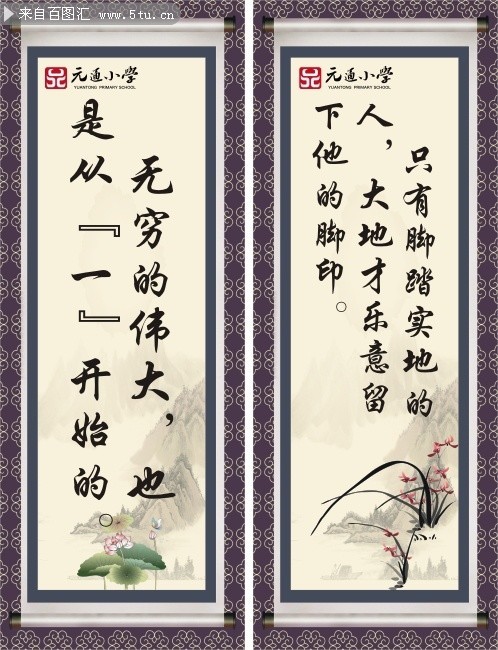 来自百图汇 www.5tu.cn
元通小學
YUANTONG PRIMARY SCHOOL
无穷的伟大，也
是从『一』开始的。
元通小學
YUANTONG PRIMARY SCHOOL
只有脚踏实地的
人，大地才乐意留
下他的脚印。